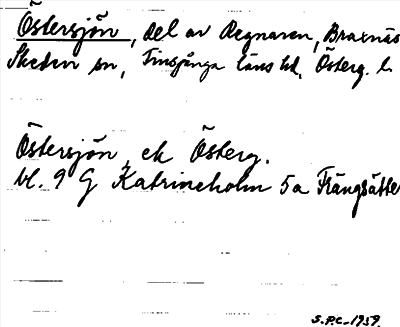 Östersjön, del av Regnaren, Braxnäs
Skedevi sn, Finspånga läns hd, Österg. l.
Östersjön ek Österg.
bl. 9 G Katrineholm 5a Frängsätter
S.P.C. 1939.